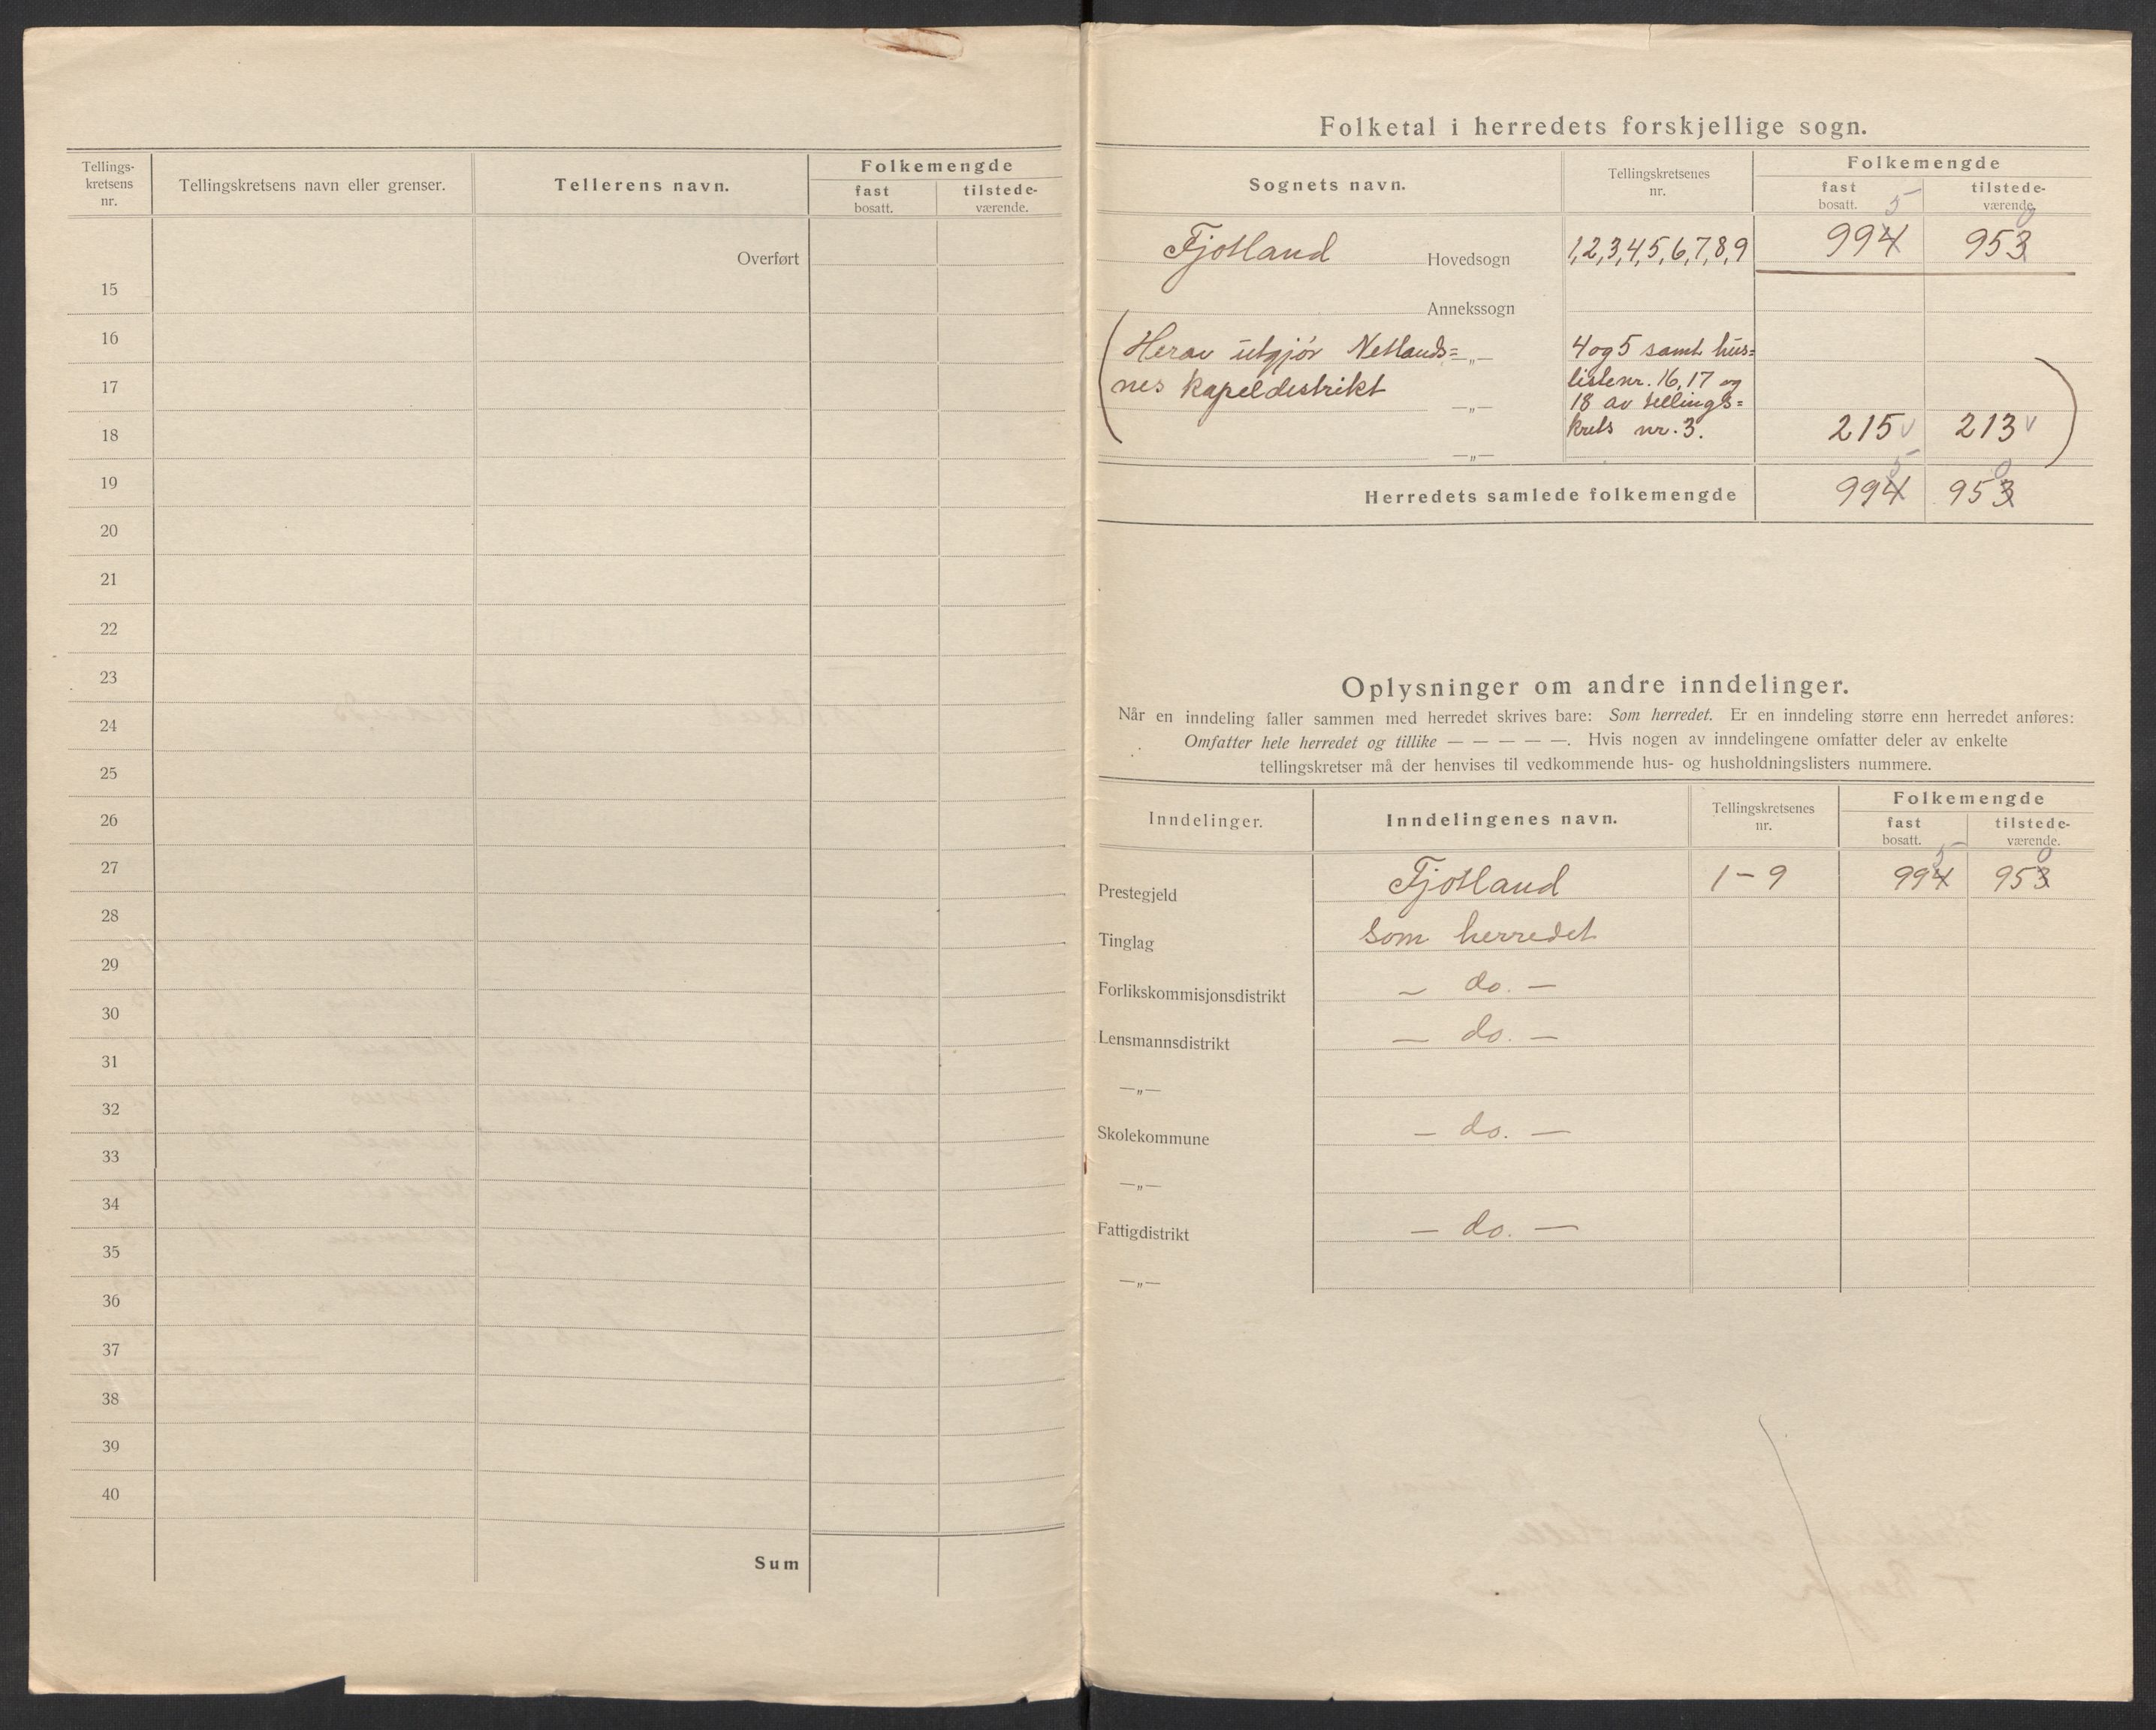 Tellings-
kretsens
nr.
Tellingskretsens navn eller grenser.
Tellerens navn.
Folkemengde
fast
bosatt.
tilstede-
værende.
Overført
15
16
17
18
19
20
21
22
23
24
25
26
27
28
29
30
31
32
33
34
35
36
37
38
39
40
Sum
Folketal i herredets forskjellige sogn.
Sognets navn.
Tellingskretsenes
nr.
Folkemengde
fast
bosatt.
tilstede-
værende.
5 0
Fjotland Hovedsogn 1,2,3,4,5,6,7,8,9 994 953
Annekssogn
(Herav utgjör Netlands= —„— 4 og 5 samt hus=
nes kapeldistrikt listenr. 16, 17 og
—„— 18 av tellings=
krets nr. 3. 215 v 213 v)
—„—
5 0
Herredets samlede folkemengde 994 953
Oplysninger om andre inndelinger.
Når en inndeling faller sammen med herredet skrives bare: Som herredet. Er en inndeling større enn herredet anføres:
Omfatter hele herredet og tillike — — — — —. Hvis nogen av inndelingene omfatter deler av enkelte
tellingskretser må der henvises til vedkommende hus- og husholdningslisters nummere.
Inndelinger.
Inndelingenes navn.
Tellingskretsenes
nr.
Folkemengde
fast
bosatt.
tilstede-
værende.
5 0
Prestegjeld Fjotland 1-9 994 953
Tinglag Som herredet
Forlikskommisjonsdistrikt — do. —
Lensmannsdistrikt — do. —
—„—
Skolekommune — do. —
—„—
Fattigdistrikt — do. —
—„—